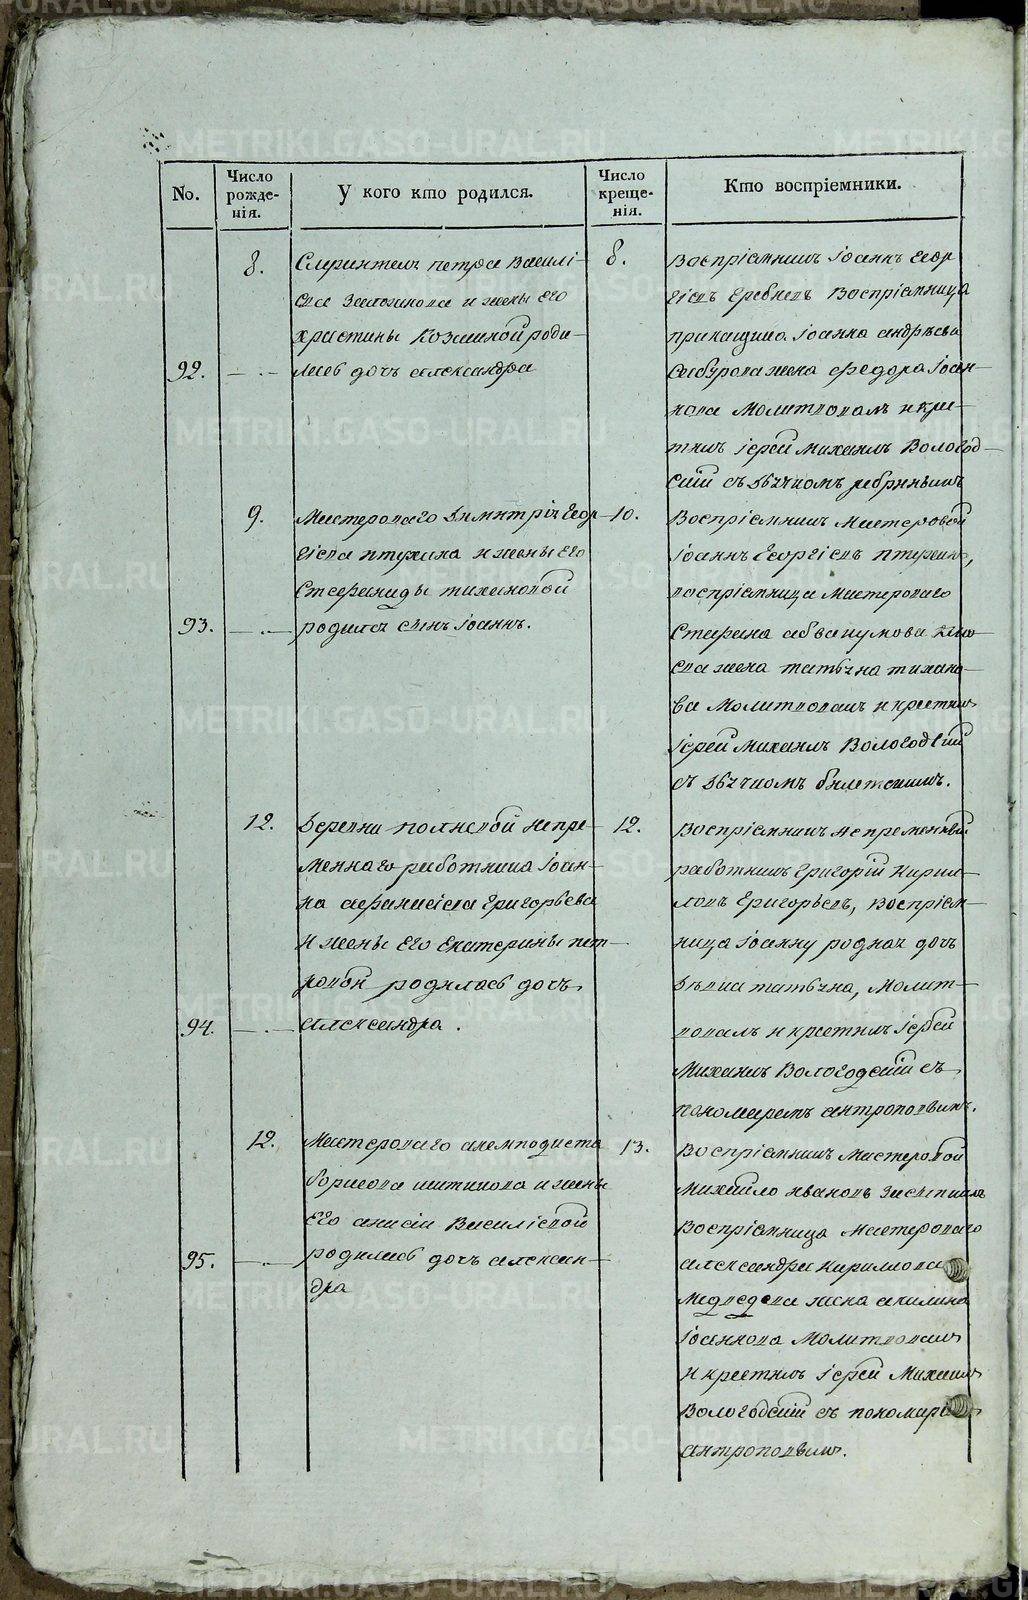 No.
Число рожде-нія.
У кого кто родился.
Число креще-нія.
Кто воспріемники.
92.
8.
петра Василі-
ева и жены его
христины Козминой роди-
лась дочь александра
8.
Воспріемникъ Іоаннъ Геор
гіевъ Гребневъ Воспріемница
прикащика Іоанна андреева
жена федора Іоан-
нова Молитвовалъ и кре-
тилъ іерей михаилъ Вологод-
скій съ дьячкомъ
93.
9.
Мастероваго Димитрія Геор-
гіева птухина и жены его
Стефаниды тихановой
родился сынъ Іоаннъ.
10.
Воспріемникъ мастеровой
Іоаннъ Георгіевъ птухинъ,
воспріемница мастероваго
Стефана абвакумова
ева жена татьяна тихано-
ва Молитвовалъ и крестилъ
іерей михаилъ Вологодскій
съ дьячкомъ
94.
12.
Деревни полневой непре-
меннаго работника Іоан-
на афанасіева Григорьева
и жены его екатерины пет-
ровой родилась дочь
александра.
12.
Воспріемникъ непременный
работникъ Григорій Кирил-
ловъ Григорьевъ, Воспріем-
ница Іоанну родная дочь
девка татьяна, Молит-
вовалъ и крестилъ Іерей
Михаилъ Вологодскій съ
пономаремъ антроповымъ.
95.
12.
Мастероваго анемподиста
борисова и жены
его анисіи Василіевой
родилась дочь алексан-
дра
13.
Воспріемникъ мастеровой
михайло ивановъ
Воспріемница мастероваго
александра кирилова
медведева жена акилина
Іоаннова Молитвовалъ
и крестилъ Іерей Михаилъ
Вологодскій съ пономаремъ
антроповымъ.
METRIKI.GASO-URAL.RU